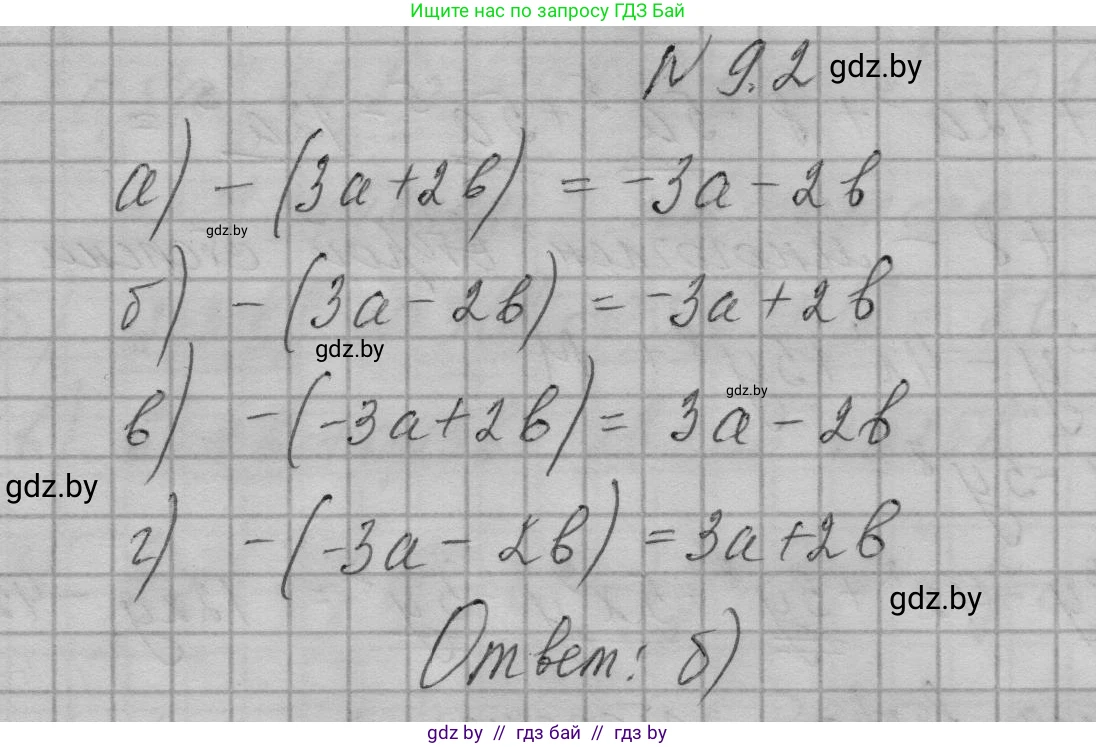 Ищите нас по запросу ГДЗ Бай
N 9.2 gdz.by
а) - (3a+2b) = -3a - 2b
gdz.by
б) - (3a - 2b) = -3a + 2b
gdz.by
gdz.by
в) - (-3a+2b) = 3a - 2b
gdz.by
г) - (-3a - 2b) = 3a+2b
gdz.by
Ответ: б)
gdz.by // гдз бай // гдз by